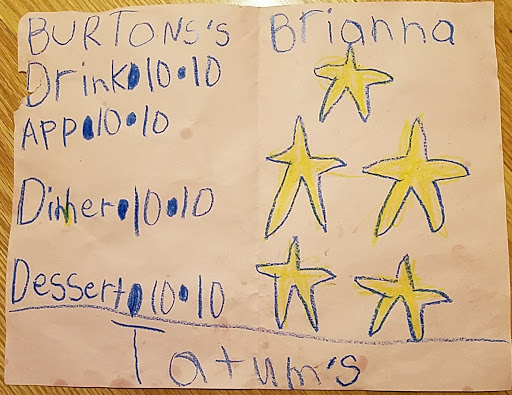 BURTONS's Brianna
Drink•10•10
App•10•10
Dinner•10•10
Dessert•10•10
Tatum's